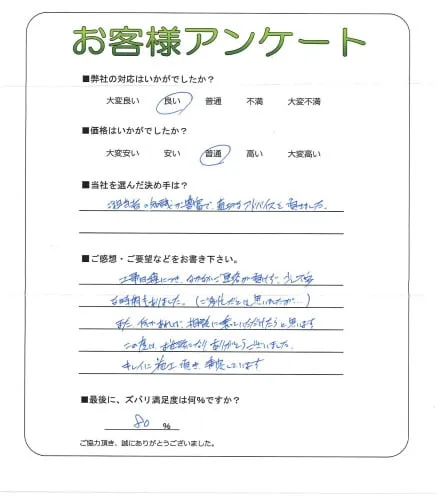 お客様アンケート
■弊社の対応はいかがでしたか?
大変良い 良い 普通 不満 大変不満
■価格はいかがでしたか?
大変安い 安い 普通 高い 大変高い
■当社を選んだ決め手は?
担当者の知識が豊富で、適切なアドバイスを頂けました。
■ご感想・ご要望などをお書き下さい。
工事日程につき、なかなかご連絡が頂けず、少し不安
な時期もありました。(ご多忙だとは思いましたが…)
また、何かあれば、相談に乗っていただけたらと思います
この度は、お世話になりありがとうございました。
キレイに施工頂き、満足しています
■最後に、ズバリ満足度は何%ですか?
80 %
ご協力頂き、誠にありがとうございました。